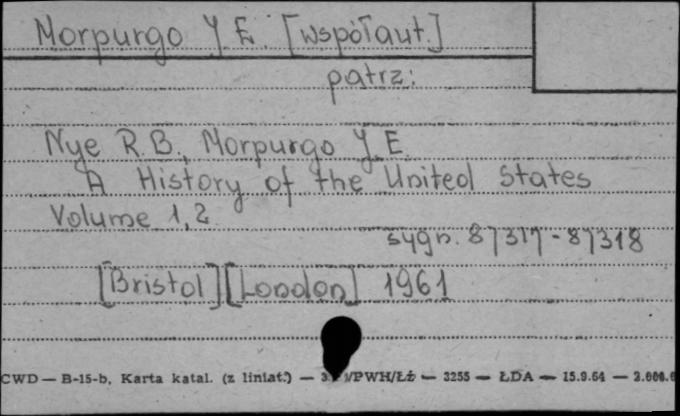 Morpurgo J. E. [współaut.]
patrz:
Nye R. B., Morpurgo J. E.
A History of the United States
Volume 1, 2
sygn. 87317-87318
[Bristol] [London] 1961
CWD — B-15-b, Karta katal. (z liniat.) — /PWH/Łź — 3255 — ŁDA — 15.9.64 —